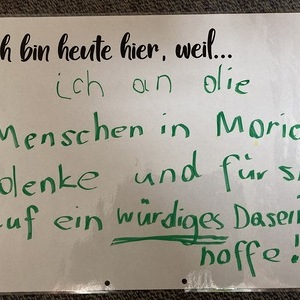 h bin heute hier, weil...
ich an die
Menschen in Moria
denke und für si
auf ein würdiges Dasein
hoffe!